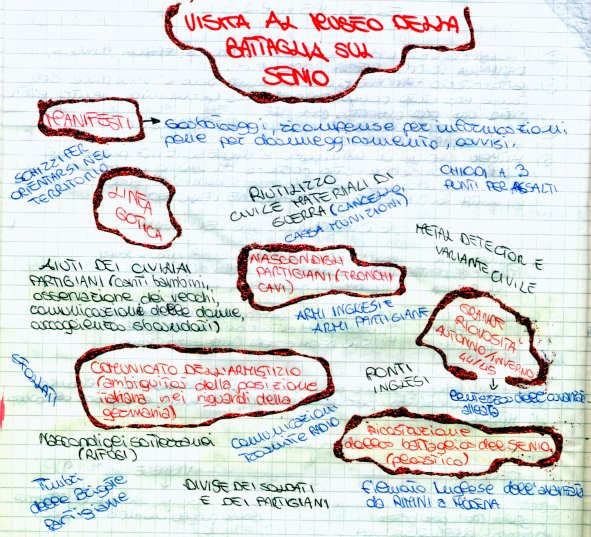 VISITA AL MUSEO DELLA
BATTAGLIA SUL
SENIO
MANIFESTI
Sabotaggi, ricompense per informazioni
pene per danneggiamento, avvisi.
SCHIZZI PER
ORIENTARSI NEL
TERRITORIO
LINEA
GOTICA
RIUTILIZZO
CIVILE MATERIALI DI
GUERRA
CASSA MUNIZIONI)
CHIODI A 3
PUNTI PER ASSALTI
METAL DETECTOR E
VARIANTE CIVILE
NASCONDIGLI
PARTIGIANI (TRONCHI
CAVI)
AIUTI DEI CIVILI AI
PARTIGIANI (canti bambini,
osservazione dei vecchi,
comunicazione delle donne,
accoglienza sbandati)
ARMI INGLESI E
ARMI PARTIGIANE
GRANDE
PIOVOSITÀ
AUTUNNO/INVERNO
44/45
SFOLLATI
COMUNICATO DELL'ARMISTIZIO
(ambiguità della posizione
italiana nei riguardi della
germania)
PONTI
INGLESI
lentezza dell'avanzata
alleata
Nascondigli sotterranei
(RIFUGI)
COMUNICAZIONI
TRAMITE RADIO
Ricostruzione
della battaglia del SENIO
(plastico)
Timbri
delle Brigate
Partigiane
DIVISE DEI SOLDATI
E DEI PARTIGIANI
filmato inglese dell'avanzata
da RIMINI a MODENA